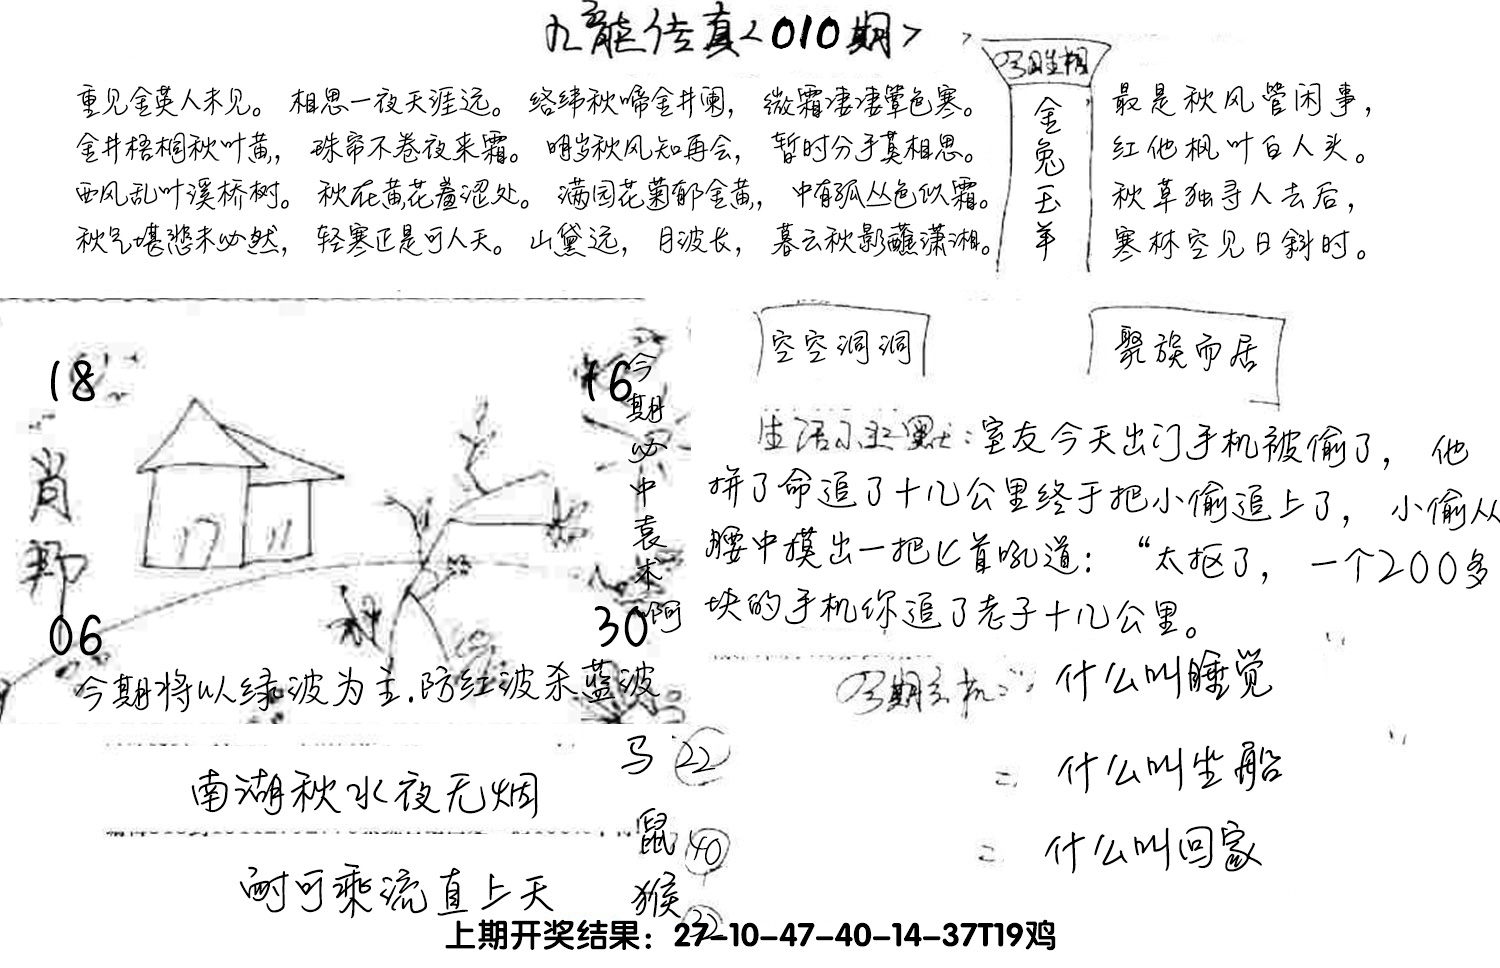 九龙传真<010期>
重见金英人未见。 相思一夜天涯远。 络纬秋啼金井阑， 微霜凄凄簟色寒。
金井梧桐秋叶黄， 珠帘不卷夜来霜。 明岁秋风知再会， 暂时分手莫相思。
西风乱叶溪桥树。 秋在黄花羞涩处。 满园花菊郁金黄， 中有孤丛色似霜。
秋气堪悲未必然， 轻寒正是可人天。 山黛远， 月波长， 暮云秋影蘸潇湘。
金兔玉羊
最是秋风管闲事，
红他枫叶白人头。
秋草独寻人去后，
寒林空见日斜时。
18
16
肖
06
30
今期必中袁术啊
今期将以绿波为主.防红波杀蓝波
空空洞洞
聚族而居
生活小幽默:室友今天出门手机被偷了， 他
拼了命追了十几公里终于把小偷追上了， 小偷从
腰中摸出一把匕首吼道：“太抠了， 一个200多
块的手机你追了老子十几公里。
什么叫睡觉
= 什么叫坐船
= 什么叫回家
南湖秋水夜无烟
耐可乘流直上天
马 22
鼠 40
猴 32
上期开奖结果：27-10-47-40-14-37T19鸡